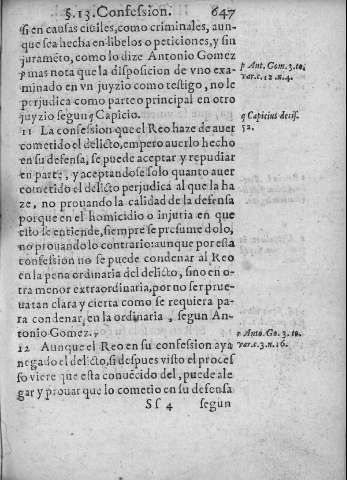 §.13.Confession. 647
si en causas ciuiles, como criminales, aun-
que sea hecha en libelos o peticiones, y sin
juramẽto, como lo dize Antonio Gomez
p mas nota que la disposicion de vno exa-
minado en vn juyzio como testigo, no le
perjudica como parte o principal en otro
juyzio segun q Capicio.
11 La confession que el Reo haze de auer
cometido el delicto, empero auerlo hecho
en su defensa, se puede aceptar y repudiar
en parte, y aceptandose solo quanto auer
cometido el delicto perjudica al que la ha
ze, no prouando la calidad de la defensa
porque en el homicidio o injuria en que
esto se entiende, siempre se presume dolo,
no prouandolo contrario: aunque por esta
confession no se puede condenar al Reo
en la pena ordinaria del delicto, sino en o-
tra menor extraordinaria, por no ser prue-
ua tan clara y cierta como se requiera pa-
ra condenar en la ordinaria, segun An-
tonio Gomez. r
12 Aunque el Reo en su confession aya
negado el delicto, si despues visto el proces
so viere que esta conuẽcido del, puede ale
gar y prouar que lo cometio en su defensa
Ss 4 segun
p Ant. Gom. 3. to.
var. c. 12. n. 4.
q Capicius decis.
52.
r Anto. Go. 3. to.
var. c. 3. n. 26.